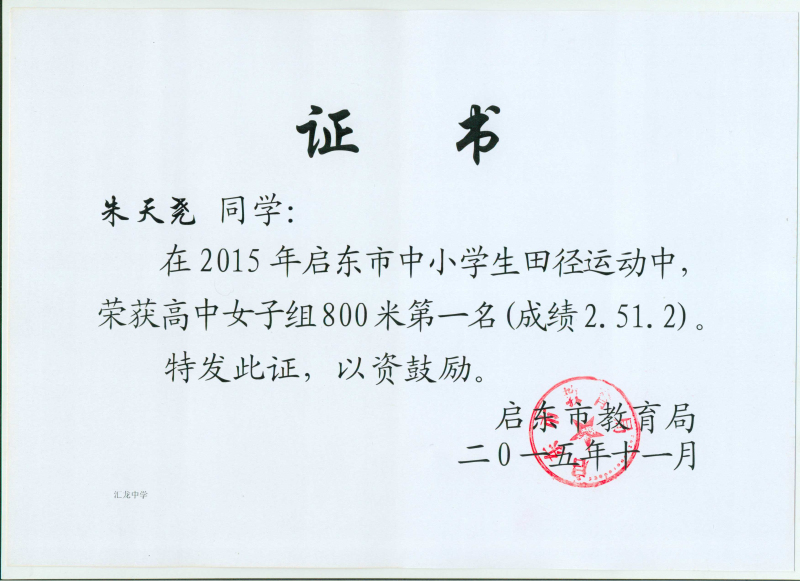 证 书
朱天尧 同学:
在2015年启东市中小学生田径运动中,
荣获高中女子组800米第一名(成绩2.51.2)。
特发此证, 以资鼓励。
启东市教育局
二0一五年十一月
启东市教育局
汇龙中学